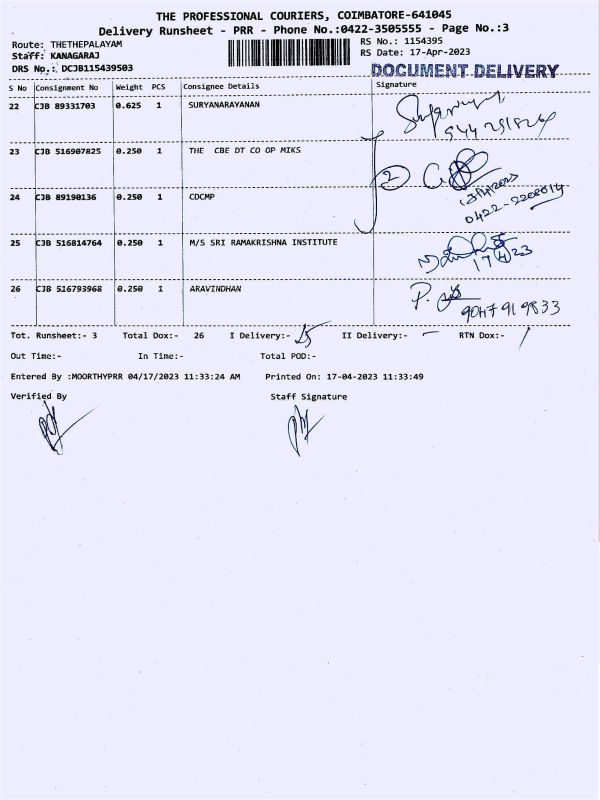 THE PROFESSIONAL COURIERS, COIMBATORE-641045
Delivery Runsheet - PRR - Phone No.:0422-3505555 - Page No.:3
Route: THETHEPALAYAM
RS No.: 1154395
Staff: KANAGARAJ
RS Date: 17-Apr-2023
DRS No.: DCJB115439503
DOCUMENT DELIVERY
S No Consignment No Weight PCS Consignee Details Signature
22 CJB 89331703 0.625 1 SURYANARAYANAN
23 CJB 516907825 0.250 1 THE CBE DT CO OP MIKS
2
0422-2200014
24 CJB 89190136 0.250 1 CDCMP
25 CJB 516814764 0.250 1 M/S SRI RAMAKRISHNA INSTITUTE
17/4/23
26 CJB 516793968 0.250 1 ARAVINDHAN
9047919833
Tot. Runsheet:- 3 Total Dox:- 26 I Delivery:- 25 II Delivery:- — RTN Dox:- /
Out Time:- In Time:- Total POD:-
Entered By :MOORTHYPRR 04/17/2023 11:33:24 AM Printed On: 17-04-2023 11:33:49
Verified By Staff Signature